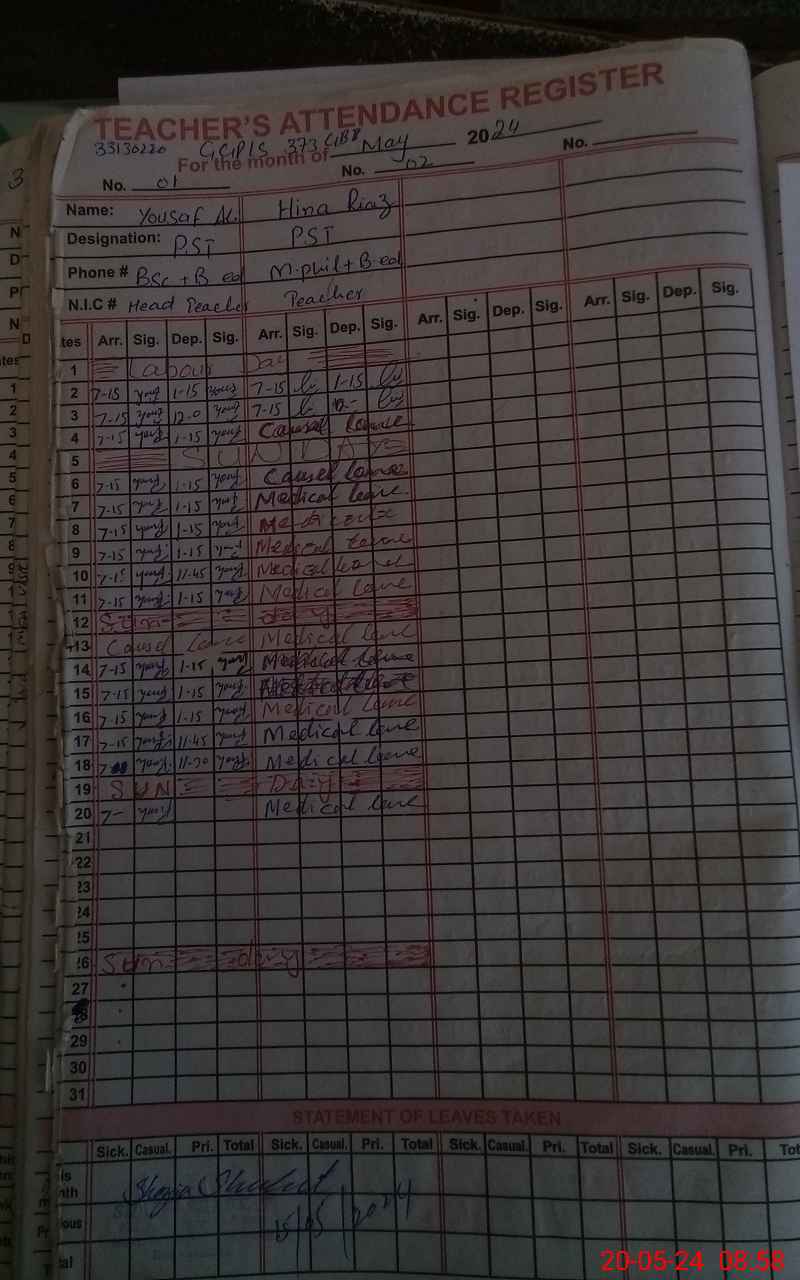 TEACHER'S ATTENDANCE REGISTER
33130220 GGPIS 373 GB
For the month of May 2024
No. 01 No. 02 No.
Name: Yousaf M. Hina Riaz
Designation: PST PST
Phone # BSc + B ed M.phil + B.ed
N.I.C # Head Teacher Teacher
tes Arr. Sig. Dep. Sig. Arr. Sig. Dep. Sig. Arr. Sig. Dep. Sig. Arr. Sig. Dep. Sig.
1 Labour Day
2 7-15 1-15 7-15 1-15
3 7-15 12.0 7-15
4 7-15 1-15 Causal leave
5 SUNDAY
6 7-15 1-15 Causel leave
7 7-15 1-15 Medical leave
8 7-15 1-15
9 7-15 1-15 Medical leave
10 7-15 11-45 Medical leave
11 7-15 1-15 Medical leave
12 Sun day
13 Causel leave Medical leave
14 7-15 1-15 Medical leave
15 7-15 1-15
16 7-15 1-15 Medical leave
17 7-15 11-45 Medical leave
18 7- 11-30 Medical leave
19 SUN Day
20 7- Medical leave
21
22
23
24
25
26 Sun day
27
28
29
30
31
STATEMENT OF LEAVES TAKEN
Sick. Casual. Pri. Total Sick. Casual. Pri. Total Sick. Casual. Pri. Total Sick. Casual. Pri. Tot
is
nth
ious
15/05/2024
tal
20-05-24 08.58